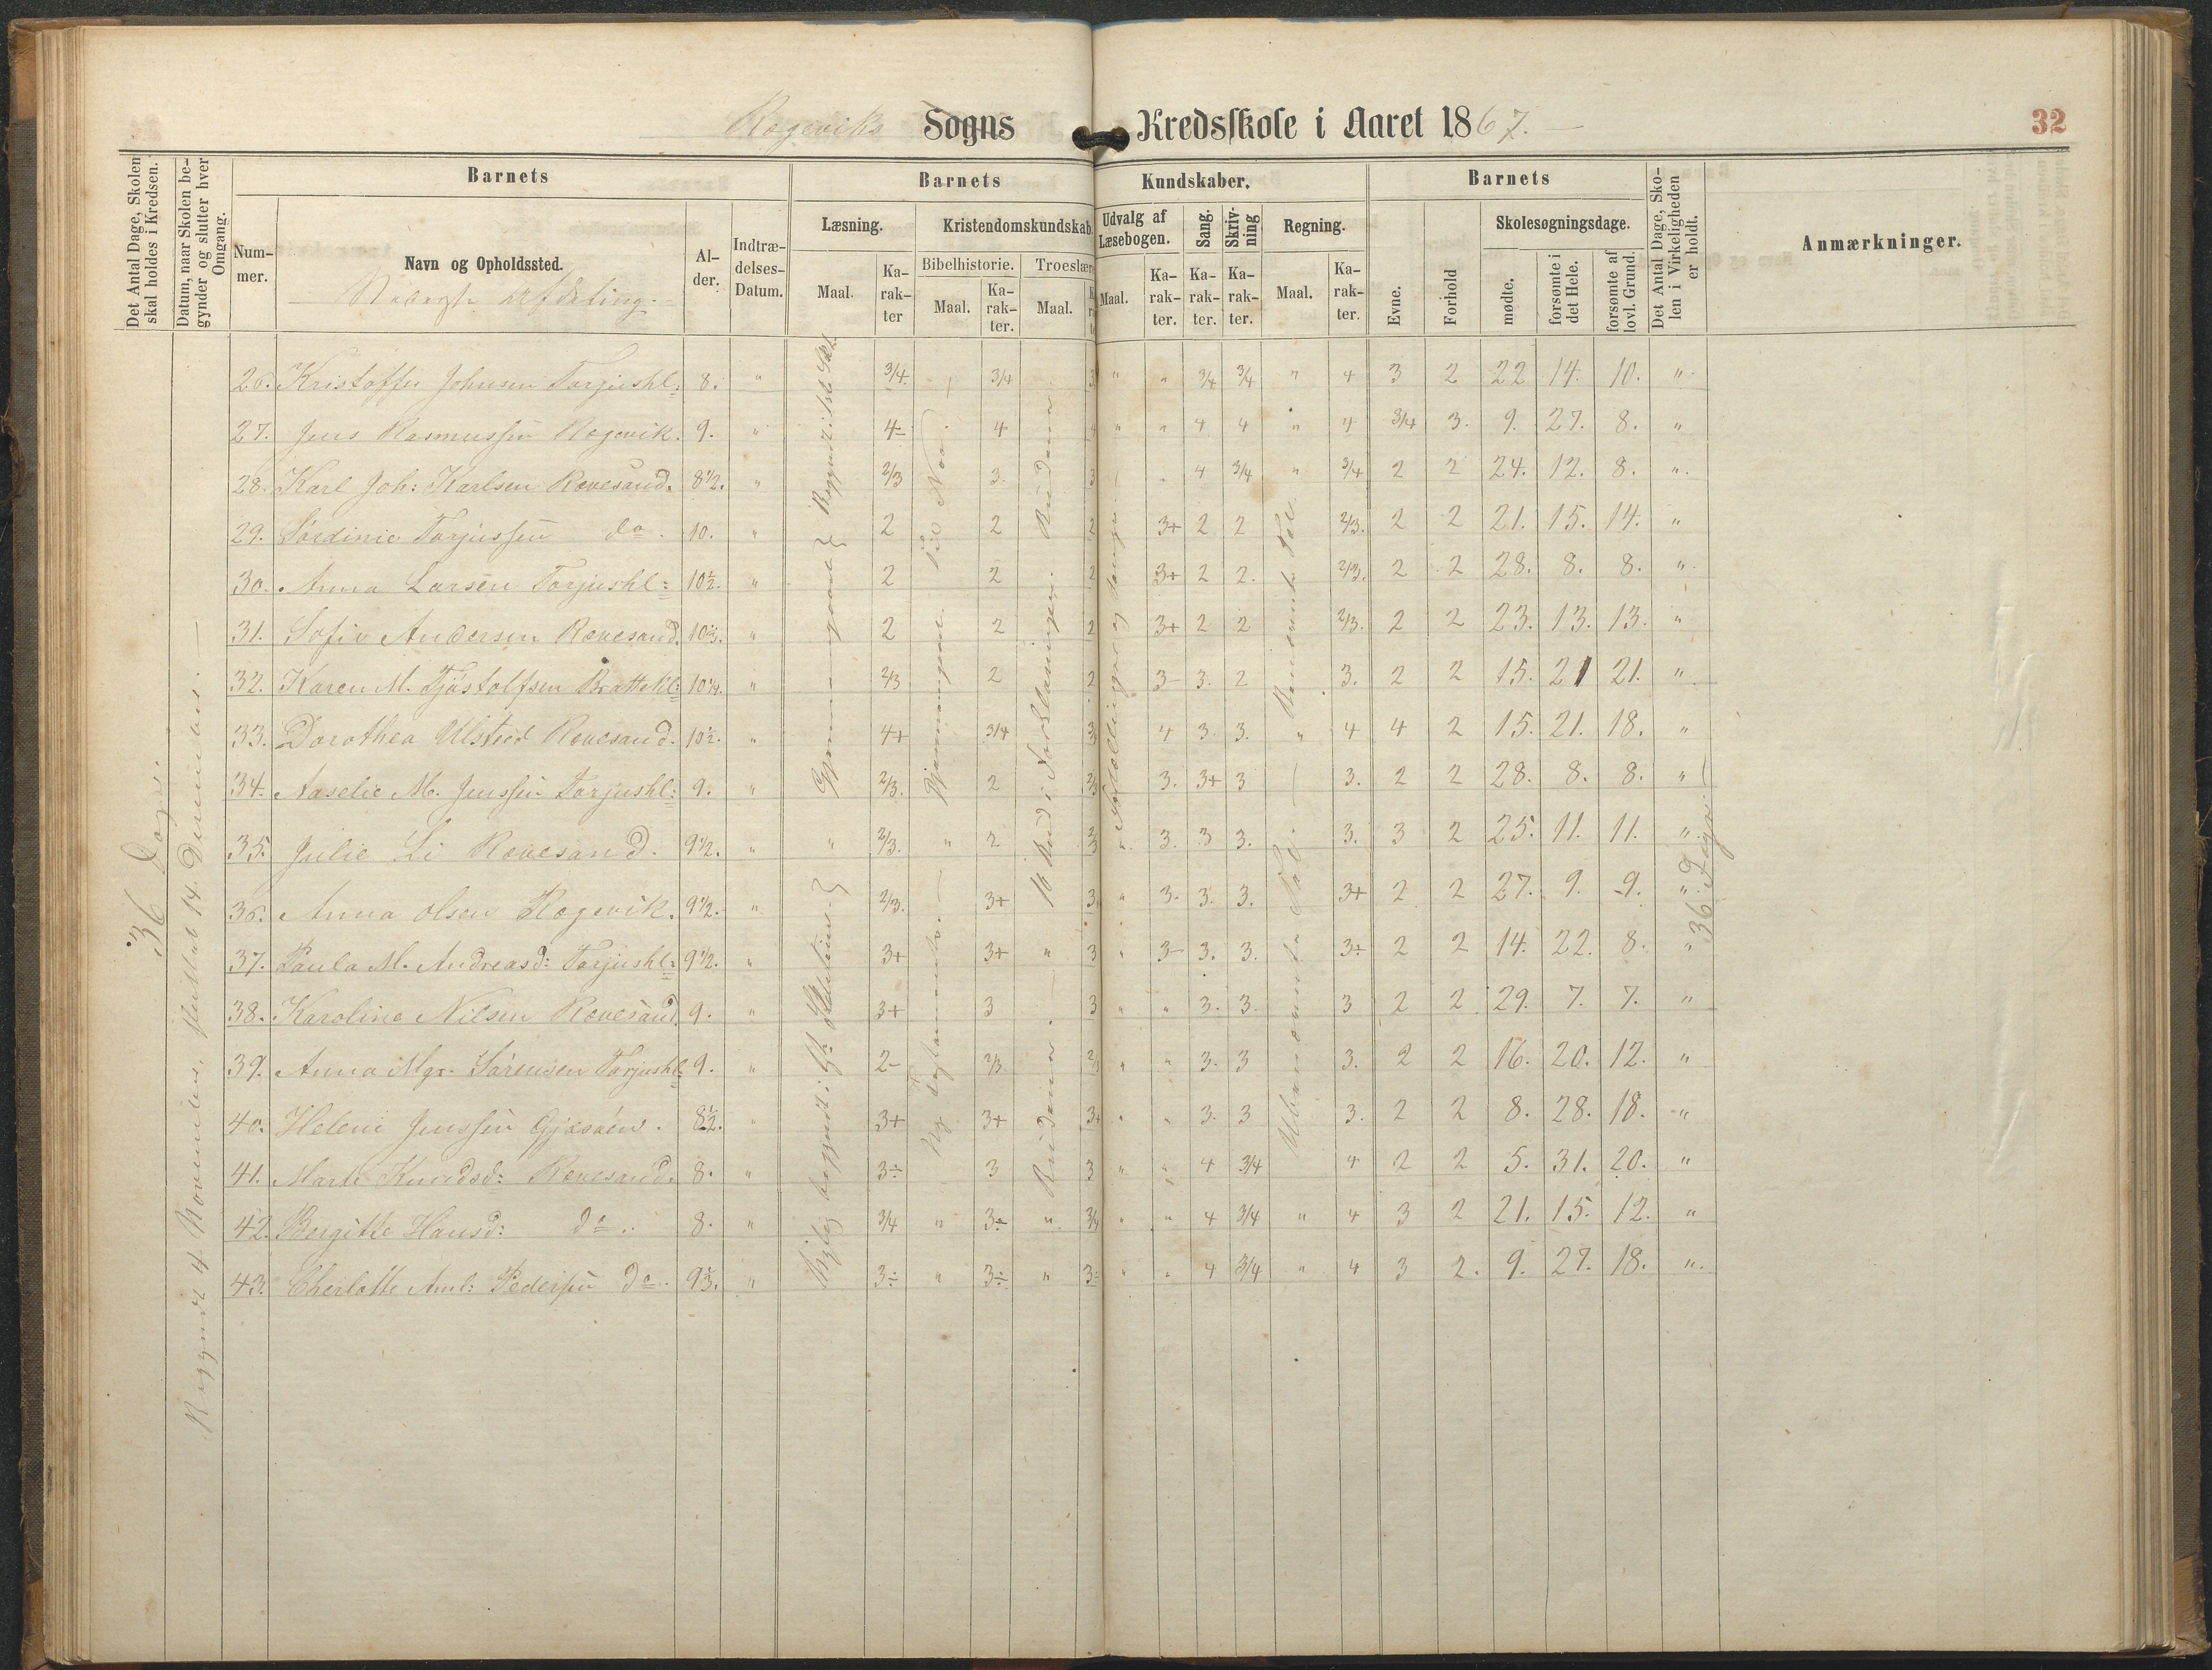 Rægeviks Sogns Kredsskole i Aaret 1867.
32
Det Antal Dage, Skolen skal holdes i Kredsen.
Datum, naar Skolen begynder og slutter hver Omgang.
Barnets
Nummer.
Navn og Opholdssted.
Alder.
Indtrædelses-Datum.
Barnets Kundskaber.
Læsning.
Maal.
Karakter
Kristendomskundskab.
Bibelhistorie.
Maal.
Karakter.
Troeslære
Maal.
Udvalg af Læsebogen.
Maal.
Karakter.
Sang.
Karakter.
Skrivning
Karakter.
Regning.
Maal.
Karakter.
Barnets
Evne.
Forhold
Skolesøgningsdage.
mødte.
forsømte i det Hele.
forsømte af lovl. Grund.
Det Antal Dage, Skolen i Virkeligheden er holdt.
Anmærkninger.
Nederste Afdeling.
36 Dage.
Begyndt 4 November, sluttet 14 December.
26. Kristoffer Johnsen Torjushl: 8. " 3/4. 3/4 3 " " 3/4 3/4 " 4 3 2 22 14. 10. "
27. Jens Rasmussen Rægevik. 9. " 4- 4 4 " " 4 4 " 4 3/4 3. 9. 27. 8. "
28. Karl Joh: Karlsen Rævesand. 8 1/2. " 2/3 3. 3 " 4 3/4 " 3/4 2 2 24. 12. 8. "
29. Sørdinie Torjussen do. 10. " 2 2 2 3+ 2 2 2/3. 2 2 21. 15. 14. "
30. Anna Larsen Torjushl: 10 1/2. " 2 2 2 3+ 2 2. 2/3. 2 2 28. 8. 8. "
31. Sofie Andersen Rævesand. 10 2/3. " 2 2 2 3+ 2 2 2/3. 2 2 23. 13. 13. "
32. Karen M. Tjøstolfsen Brattekl: 10 1/4. " 2/3 2 2 3- 3. 2 3. 2 2 15. 21 21. "
33. Dorothea Ulsted Rævesand. 10 1/2. " 4+ 3/4 3/4 4 3. 3. " 4 4 2 15. 21. 18. "
34. Naselie M. Jenssen Torjushl: 9. " 2/3. 2 2/3 3. 3+ 3 3. 2 2 28. 8. 8. "
35. Julie Li Rævesand. 9 1/2. " " 2/3. " 2 2/3 " 3. 3 3. 3. 3 2 25. 11. 11. "
36. Anna Olsen Rægevik. 9 1/2. " 2/3. 3+ 3 " 3. 3. 3. 3+ 2 2 27. 9. 9. "
37. Paula M. Andreasd: Torjushl: 9 1/2. " 3+ 3+ " 3 " 3- 3. 3. 3÷ 2 2 14. 22. 8. "
38. Karoline Nilsen Rævesand. 9. " 3+ 3 3 " " 3. 3. 3 2 2 29. 7. 7. "
39. Anna Mgr. Sørensen Torjushl: 9. " 2- 2/3 2/3 " " 3. 3 3. 2 2 16. 20. 12. "
40. Helene Jenssen Gjæsøen. 8 1/2. " 3+ 3+ 3+ " " 3. 3 3. 2 2 8. 28. 18. "
41. Marte Knudsd: Rævesand. 8. " 3÷ 3 3 " " 4 3/4 4 2 2 5. 31. 20. "
42. Bergitte Hansd: do. 8. " 3/4 " 3÷ " 3/4 " " 4 3/4 " 4 3 2 21. 15. 12. "
43. Cherlotte Aml: Pedersen do. 9 1/3. " 3÷ " 3÷ " 3÷ " " 4 3/4 " 4 3 2. 9. 27. 18. "
Til Noa
Gjennemgaaet
Ubenævnte Tal.
36 Dage.